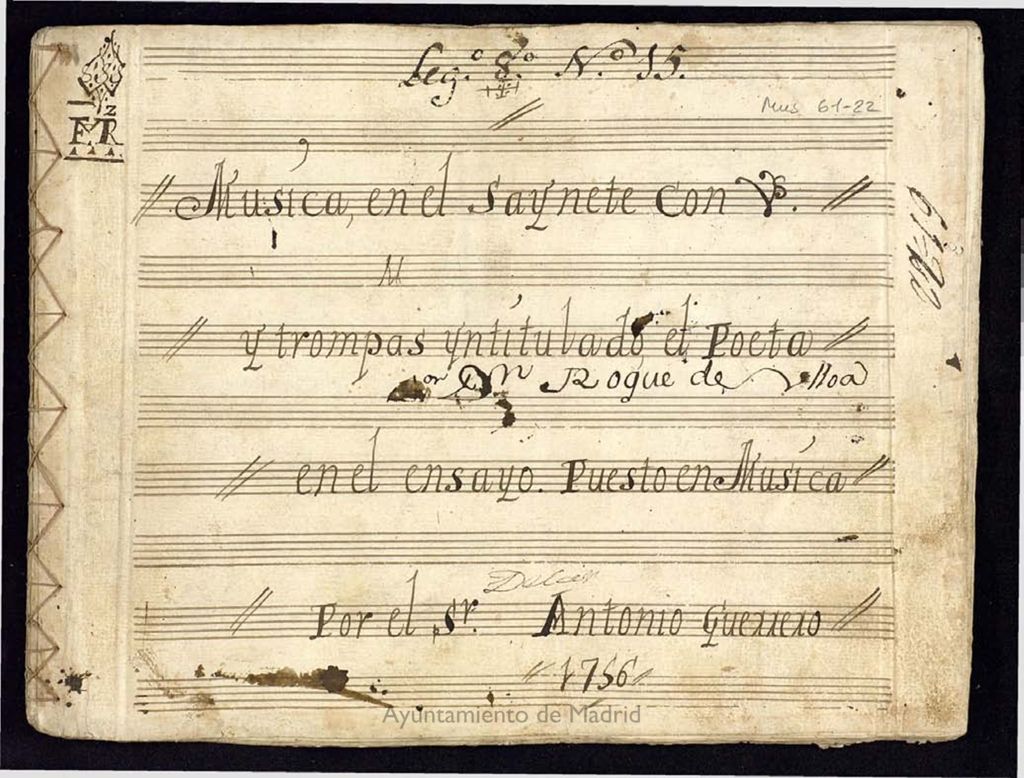 Leg.º 8.º N.º 15.
Mus 61-22
2
F R
Musica, en el Saynete Con V.s
61-22
M
y trompas yntitulado, el Poeta
por Dn Roque de Ulloa
en el ensayo. Puesto en Musica
Por el Sr. Antonio Guerrero
1756
Ayuntamiento de Madrid